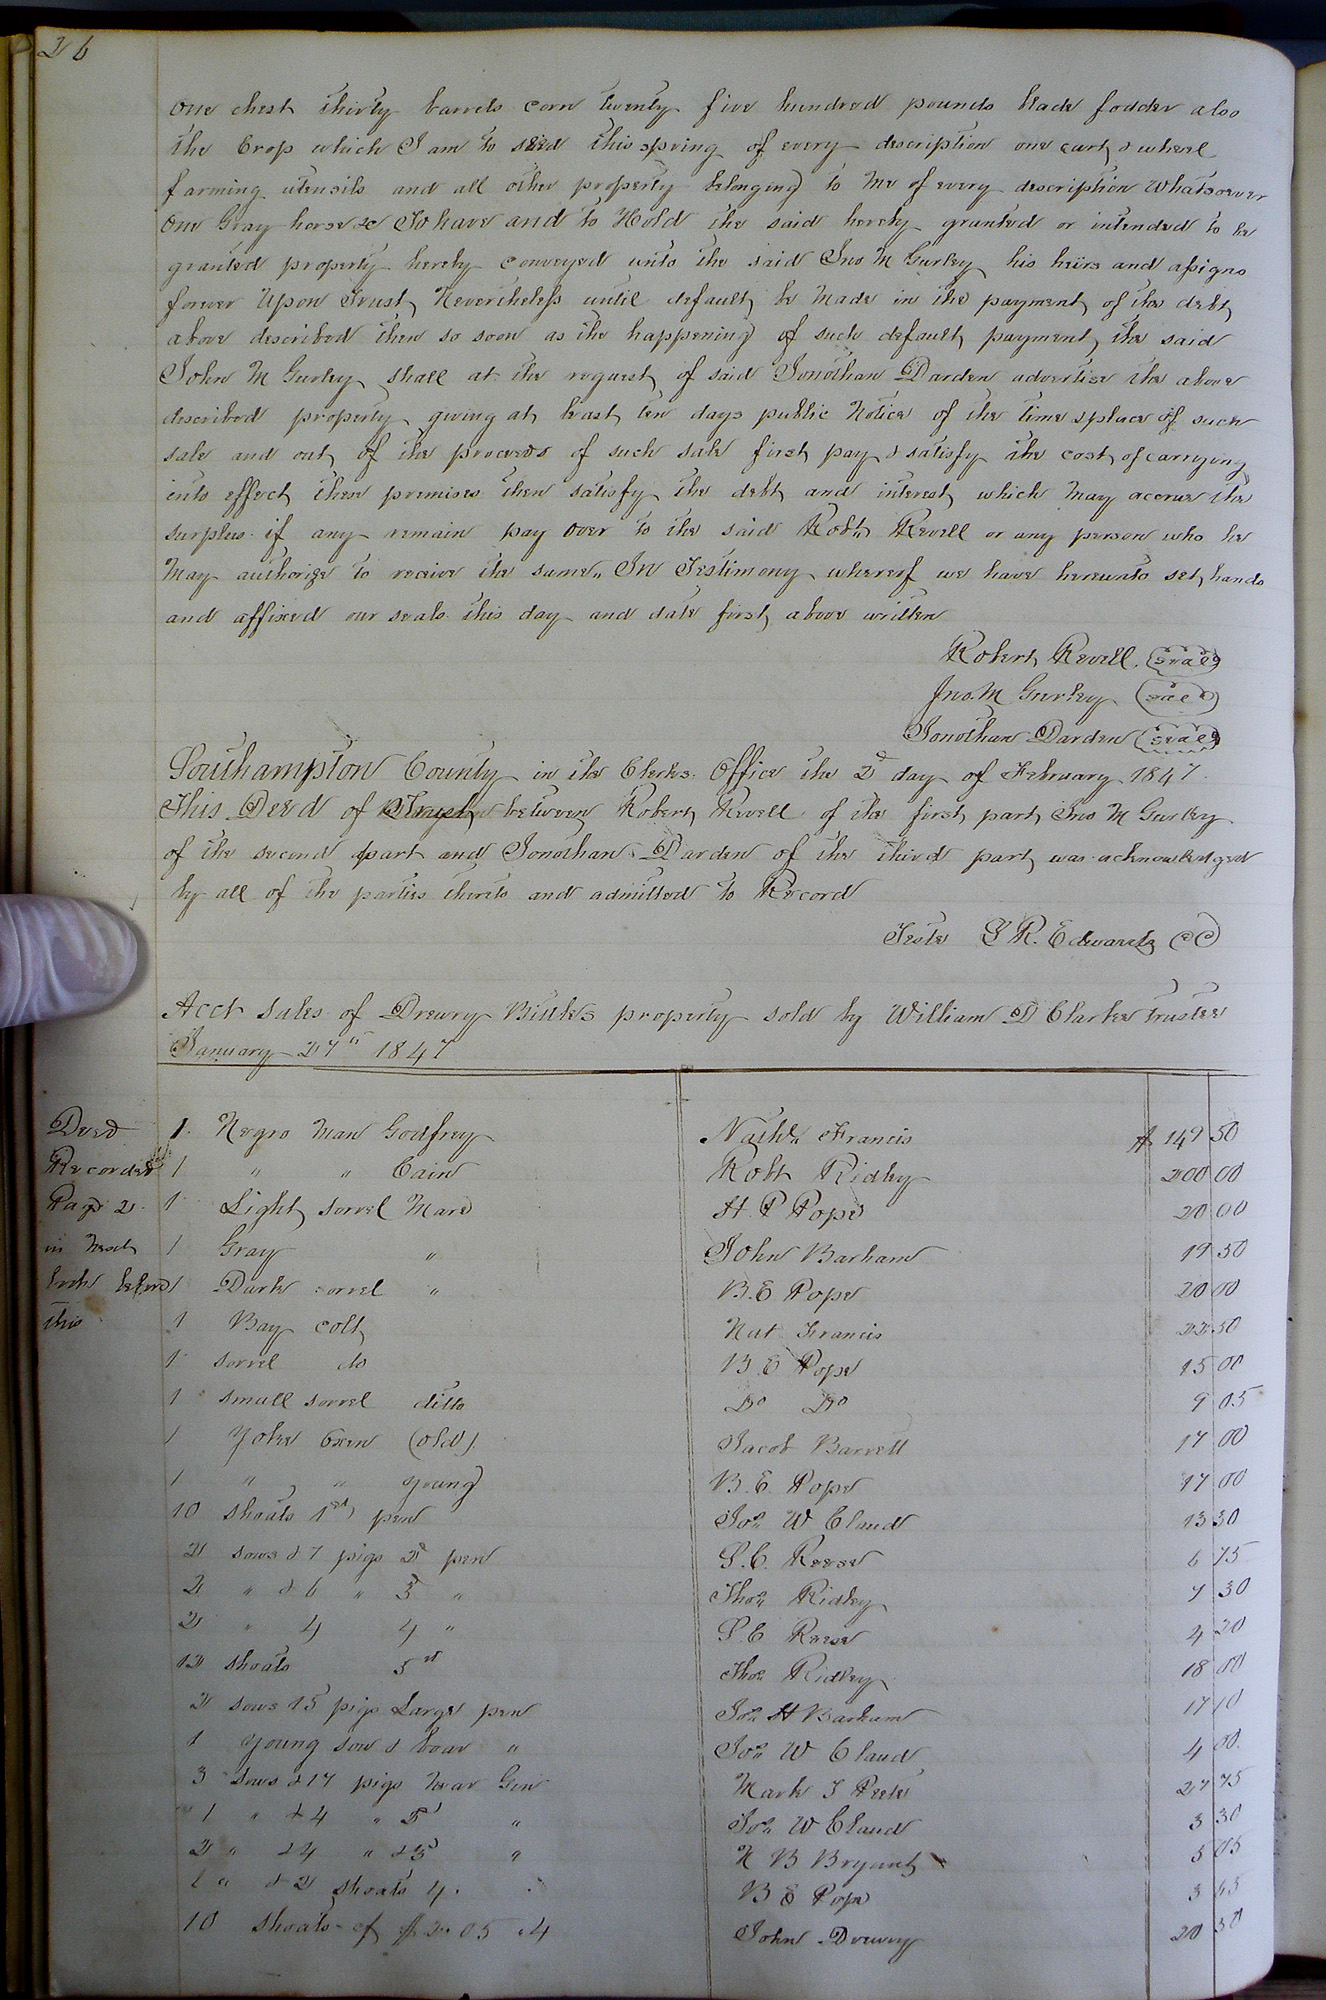 26
One chest thirty barrels corn twenty five hundred pounds blade fodder also
the Crop which I am to seed this spring of every description one cart & wheel
farming utensils and all other property belonging to me of every description whatsoever
One Gray horse &c To have and to Hold the said hereby granted or intended to be
granted property hereby conveyed unto the said Jno M Gurley his heirs and assigns
forever Upon Trust, Nevertheless until default be made in the payment of the debt
above described then so soon as the happening of such default payment the said
John M Gurley shall at the request of said Jonathan Darden advertise the above
described property giving at least ten days public Notice of the time & place of such
sale and out of the proceeds of such sale first pay & satisfy the cost of carrying
into effect these premises then satisfy the debt and interest which may accrue the
surplus if any remain pay over to the said Robt. Revell or any person who he
May authorize to receive the same. In Testimony whereof we have hereunto set hands
and affixed our seals this day and date first above written
Robert Revell (seal)
Jno. M Gurley (seal)
Jonathan Darden (seal)
Southampton County in the Clerks Office the 2d day of February 1847.
This Deed of Trust between Robert Revell of the first part Jno M Gurley
of the second part and Jonathan Darden of the third part was acknowledged
by all of the parties thereto and admitted to Record
Teste L R. Edwards CC
Acct Sales of Drewry Bittles property sold by William D Clarke trustee
January 27th 1847
Deed 1. Negro Man Godfrey Nathl. Francis $ 149 50
Recorded 1 " " Cain Robt Ridley 200 00
Page 2. 1 Light sorrel Mare H. P Pope 20 00
in 1 Gray " John Barham 19 50
book before 1 Dark sorrel " B. E Pope 20 00
this 1 Bay colt Nat Francis 22 50
1 sorrel do B. E Pope 15 00
1 small sorrel ditto Do Do 9 05
1 Yoke Oxen (old). Jacob Barrett 17 00
1 " " young B. E. Pope 17 00
10 shoats 1st pen Jos. W Claud 13 30
2 sows & 7 pigs 2d pen S. C. Reese 6 75
2 " & 6 " 3d " Thos. Ridley 7 30
2 " 4 4 " S. C Reese 4 20
12 shoats 5th Thos Ridley 18 00
2 sows 15 pigs Large pen Jos. H Barham 17 10
1 young sow & boar " Jos. W Claud 4 00.
3 Sows & 17 pigs Near Gin Mark J 27 75
1 " & 4 " 5 " Jos. W Claud 3 30
2 " & 4 " & 3 " N B Bryant 5 05
1 " & 2 shoats 4. B E Pope 3
10 Shoats of $ 2.05 John Drewry 20 50